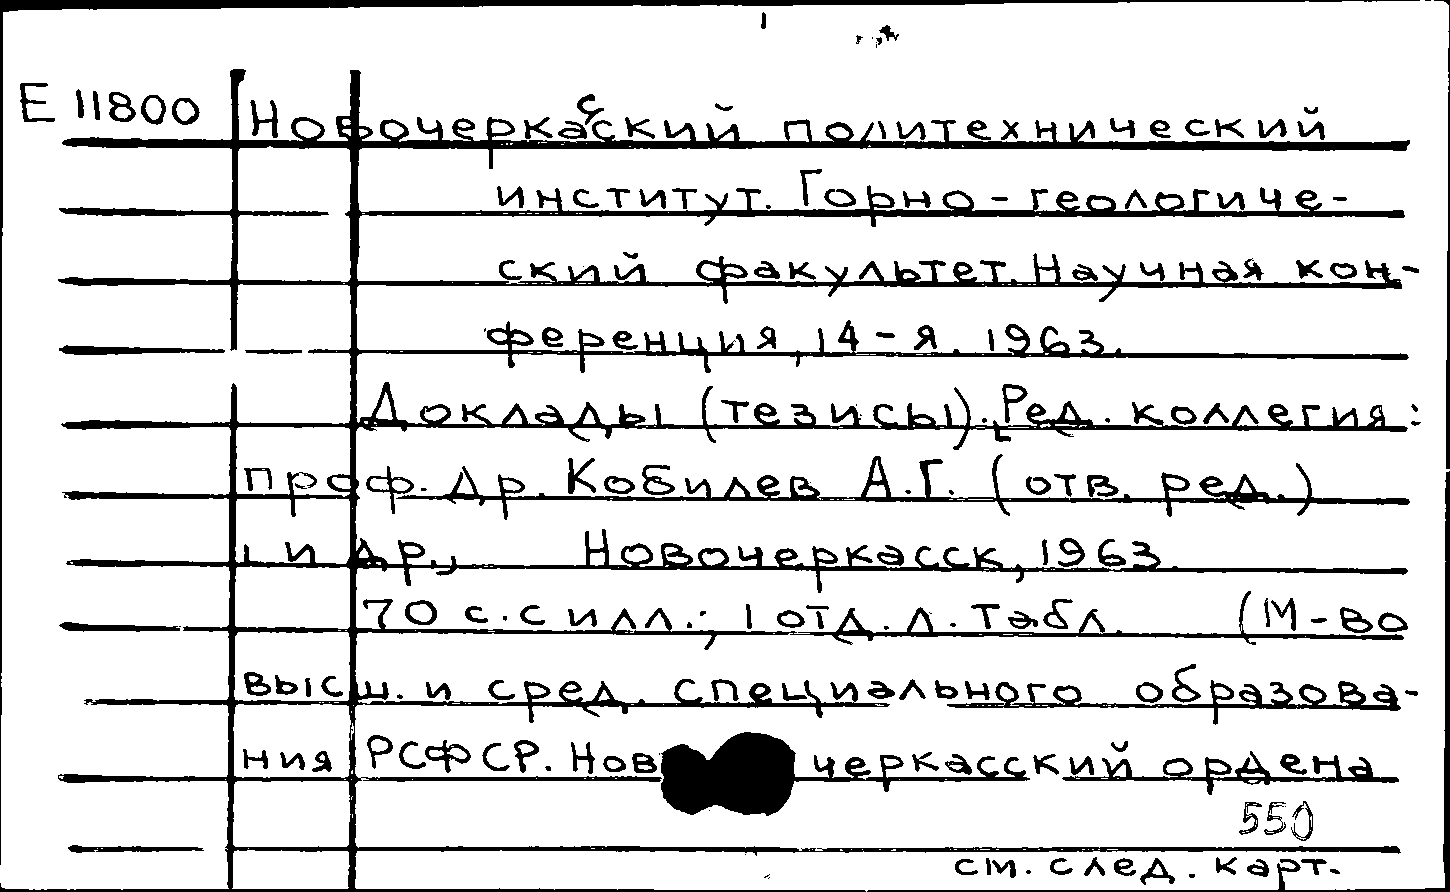 Е 11800 Новочеркасский политехнический
институт. Горно-геологиче-
ский факультет. Научная кон-
ференция, 14-я. 1963.
Доклады (тезисы). [Ред. коллегия:
проф. др. Кобилев А.Г. (отв. ред.)
и др., Новочеркасск, 1963.
70 с. с илл.; 1 отд. л. табл. (М-во
высш. и сред. специального образова-
ния РСФСР. Нов черкасский ордена
550
см. след. карт.